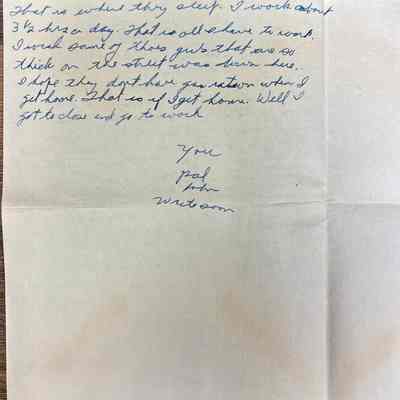 That is where they sleep. I work about
3 1/2 hrs a day. That is all I have to work.
I wish some of thoes guys that are so
thick on the street was down here.
I hope they dont have gas ration when I
get home. That is if I get home. Well I
got to close and go to work
You
pal
John
Write soon